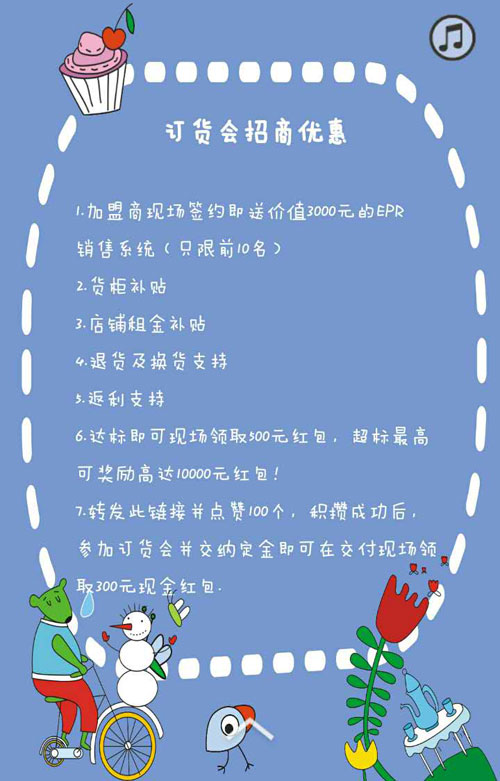 订货会招商优惠
1.加盟商现场签约即送价值3000元的EPR
销售系统（只限前10名）
2.货柜补贴
3.店铺租金补贴
4.退货及换货支持
5.返利支持
6.达标即可现场领取500元红包，超标最高
可奖励高达10000元红包！
7.转发此链接并点赞100个，积攒成功后，
参加订货会并交纳定金即可在交付现场领
取300元现金红包.